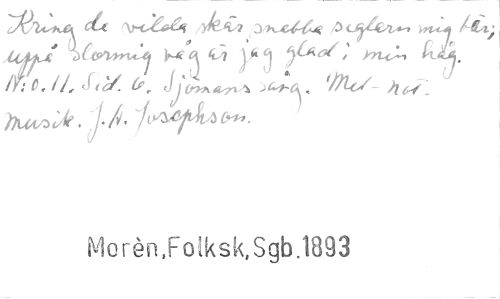 Kring de vilda skär snabba seglarn mig bär;
uppå stormig våg är jag glad i min håg.
N:o. 11. Sid. 6. Sjömanssång. Met-not.
musik. J. A. Josephson.
Morèn,Folksk,Sgb.1893